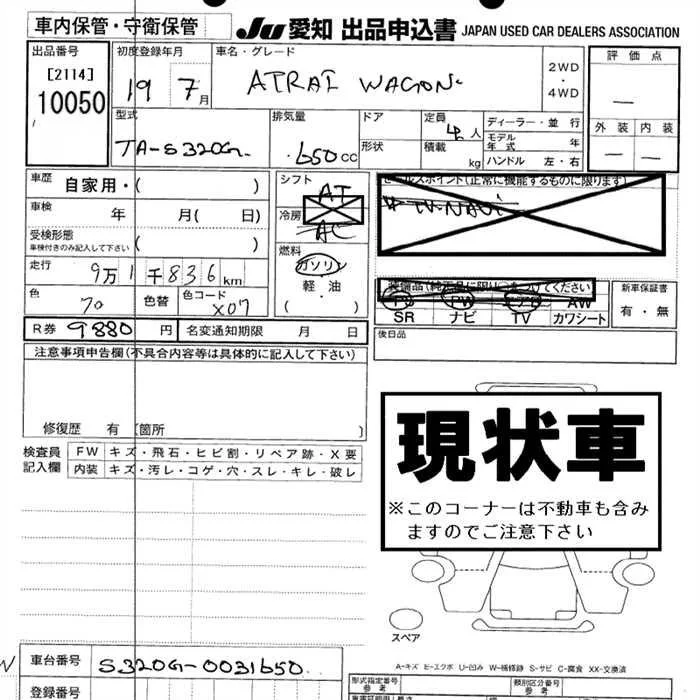 車内保管・守衛保管
JU 愛知 出品申込書 JAPAN USED CAR DEALERS ASSOCIATION
出品番号
[2114]
10050
初度登録年月
19 7月
車名・グレード
ATRAI WAGON
2WD
・
4WD
評価点
—
外装 内装
— —
型式
TA-S320G
排気量
.650cc
ドア
形状
定員 4人
積載 kg
ディーラー・並行
モデル年式 年
ハンドル 左・右
車歴 自家用・( )
車検 年 月( 日)
受検形態
車検付きのみ記入して下さい ( )
走行 9万1千836km
色 色替 色コード X07
R券 9880円 名変通知期限 月 日
シフト AT
冷房 AC
燃料
ガソリン
軽・油
( )
セールスポイント(正常に機能するものに限ります)
TV-NAVI
装備品(純正品に限り○をつけてください)
PS PW エアB AW
SR ナビ TV カワシート
新車保証書
有・無
後日品
注意事項申告欄(不具合内容等は具体的に記入して下さい)
修復歴 有 〔箇所 〕
検査員記入欄
FW キズ・飛石・ヒビ割・リペア跡・X要
内装 キズ・汚レ・コゲ・穴・スレ・キレ・破レ
現状車
※このコーナーは不動車も含み
ますのでご注意下さい
スペア
A-キズ E-エクボ U-凹み W-補修跡 S-サビ C-腐食 XX-交換済
車台番号 S320G-0031650
登録番号
形式指定番号
参考
類別区分番号
参考